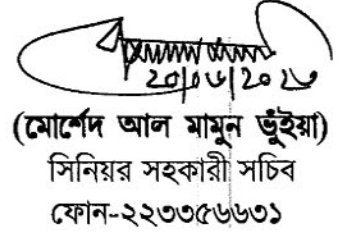 ২০/০৬/২০২৩
(মোর্শেদ আল মামুন ভুঁইয়া)
সিনিয়র সহকারী সচিব
ফোন-২২৩৩৫৬৬৩১